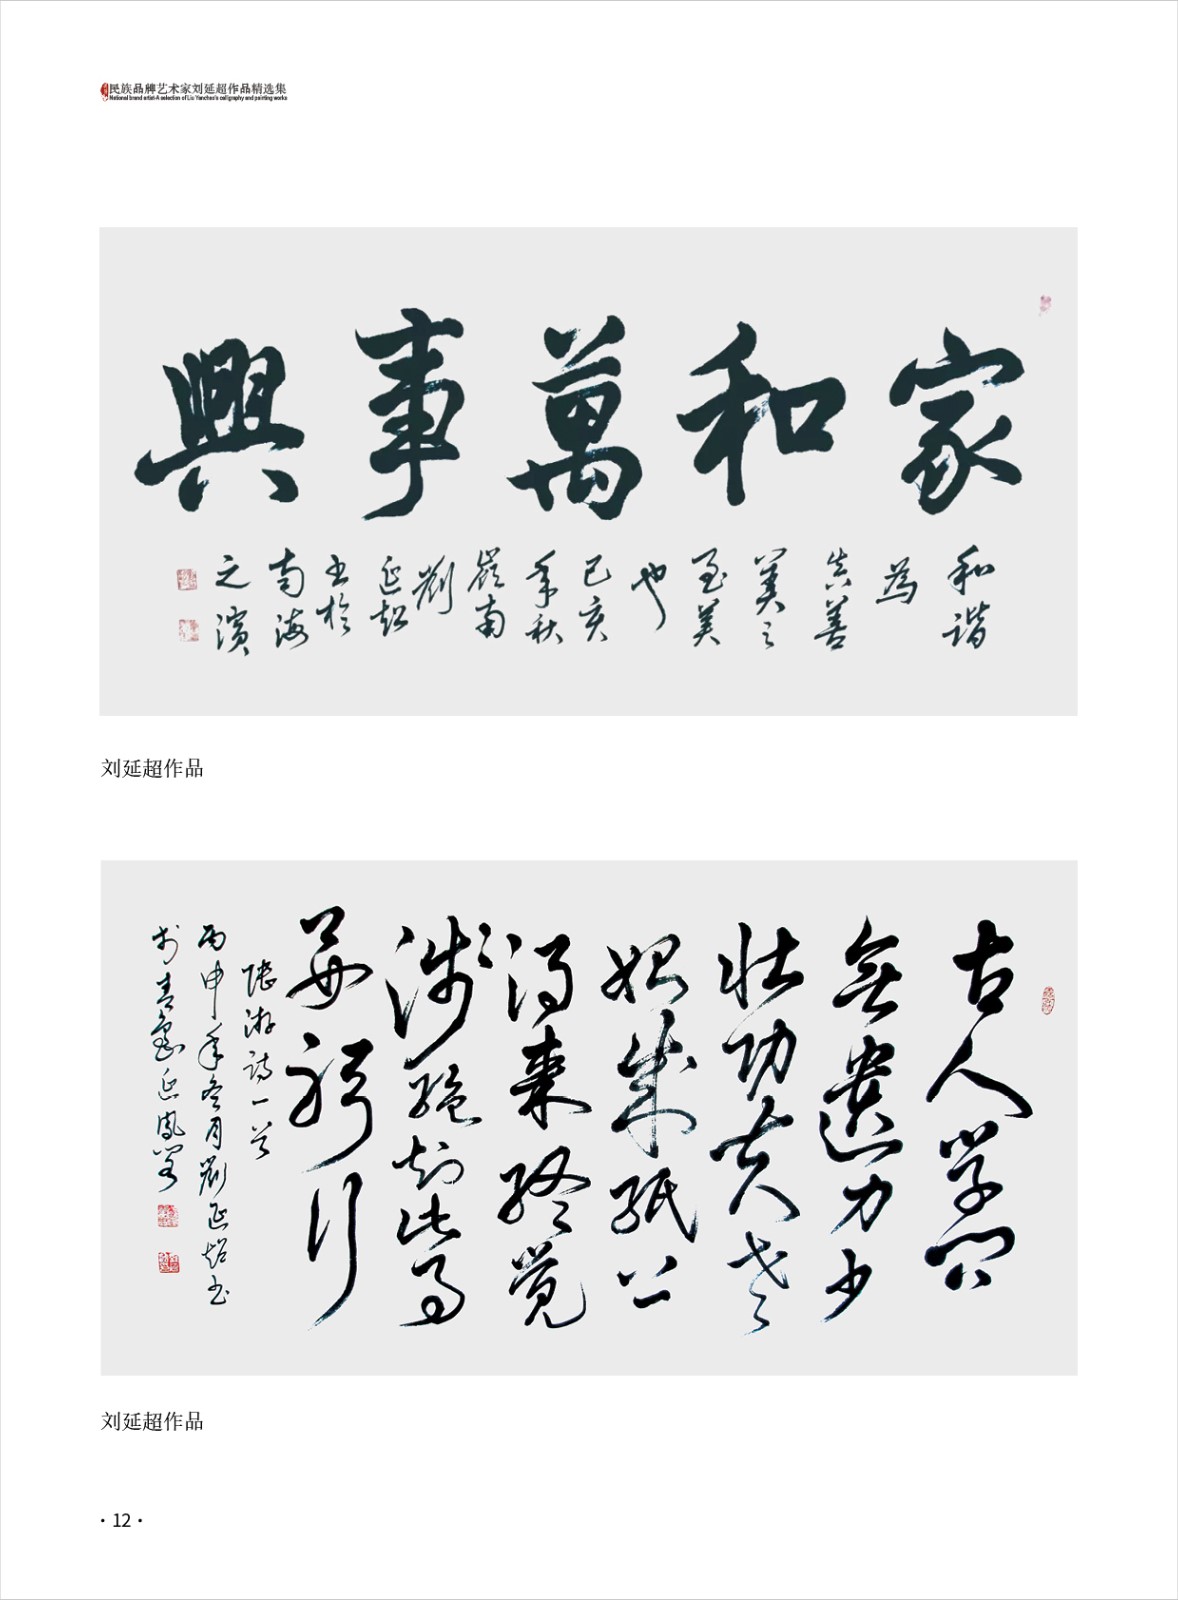 民族品牌艺术家刘延超作品精选集
National brand artist-A selection of Liu Yanchao's calligraphy and painting works
家和萬事興
和谐
為
真善
美之
至美
也
己亥
年秋
嶺南
劉
延超
书於
南海
之濱
刘延超作品
古人学问
無遗力少
壮功夫老
始成纸上
得来终觉
浅绝知此事
要躬行
陆游诗一首
丙申年冬月劉延超书
于青島延鳳閣
刘延超作品
·12·